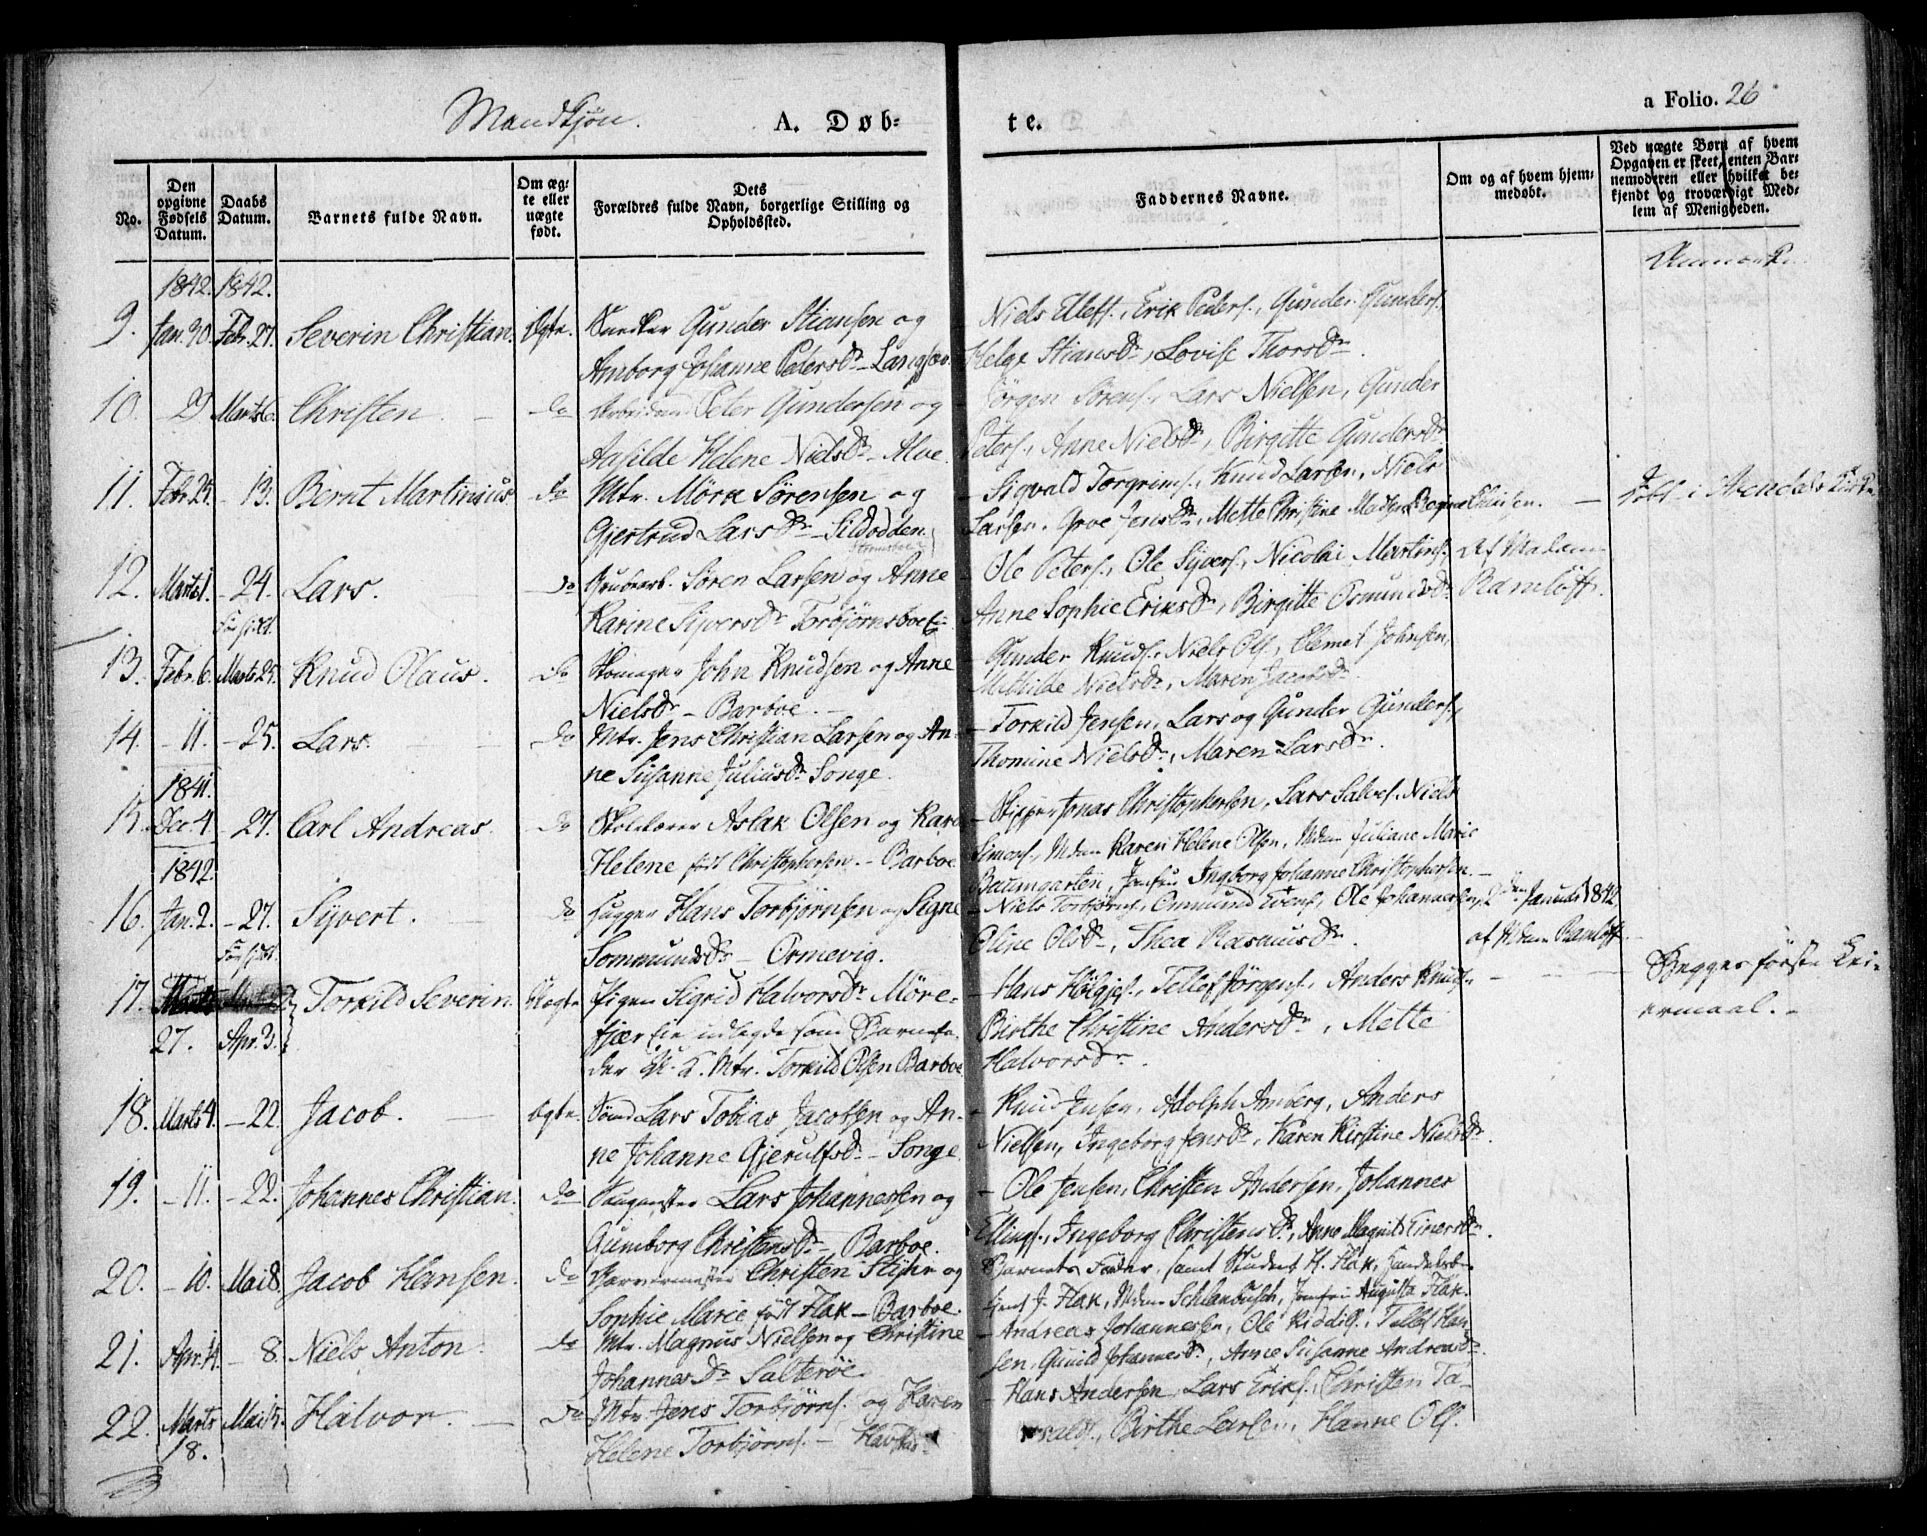 Mandkjøn. A. Døb- te. a Folio. 26
No.
Den opgivne Fødsels Datum.
Daabs Datum.
Barnets fulde Navn.
Om ægte eller uægte født.
Dets Forældres fulde Navn, borgerlige Stilling og Opholdssted.
Faddernes Navne.
Om og af hvem hjemmedøbt.
Ved uægte Børn af hvem Opgaven er skeet, enten Barnemoderen eller hvilket bekjendt og troværdigt Medlem af Menigheden.
1842. 1842.
9. Jan. 30. Febr. 27. Severin Christian. Ægte. Gunder Stiansen og
Amborg Johanne Pedersdr
Niels Ellefs., Erik Peders., Gunder Gunders.
Helge Stiansdr, Lovise Thorsdr.
10. 29 Marts 6. Christen. do Peter Gundersen og
Aasilde Helene Nielsdr - Alve.
Jörgen Sörens., Lars Nielsen, Gunder
Peters., Anne Nielsdr, Birgitte Gundersdr
11. Febr. 25. - 13. Bernt Martinius do Mtr. Mörk Sörensen og
Gjertrud Larsdr - Sildodden
Sigvald Torgrims., Knud Larsen, Niels
Larsen. Groe Jensdr, Mette Christine
Döbt i Arendals Kirke
12. Marts 1. - 24. Lars. do Grubearb. Sören Larsen og Anne
Karine Sijversdr Torbjörnsboe
Ole Peters., Ole Sijvers., Nicolai Martins.
Anne Sophie Eriksdr, Birgitte Osmundsdr
Af Madam
Ramlöff.
13. Febr. 6. Marts 25. Knud Olaus. do Skomager John Knudsen og Anne
Nielsdr - Barboe.
Gunder Knuds., Niels Ols., Clemet Johnsen,
Mathilde Nielsdr, Maren Jacobsdr.
14. - 11. - 25. Lars. do Mtr. Jens Christian Larsen og An-
ne Susanne Juliusdr Songe.
Torkild Jensen, Lars og Gunder Gunders.,
Thomine Nielsdr, Maren Larsdr.
1841.
15. Dec. 4. - 27. Carl Andreas. do Skolelærer Aslak Olsen og Karen
Helene född Christophersen. - Barboe
Skipper Jonas Christophersen, Lars Salves. Niels
Simons., Mdm Karen Helene Olsen, Mdm Juliane Marie
Baumgarten, Jomfru Ingborg Johanne Christophersen.
1842.
16. Jan. 2. - 27. Sijvert. do Hugger Hans Torbjörnsen og Signe
Sommundsdr - Ormevig.
Niels Torbjörns., Omund Evens., Ole Johannesen,
Oline Olsdr, Thea Rasmusdr.
2den Januar 1842
af Mdm Ramlöff
17. 27. Apr. 3. Torkild Severin. Uægte Pigen Sigrid Halvorsdr Möre-
fjær Eie udlagde som Barnefa-
der Mtr. Torkild Olsen Barboe
Hans Helges., Tellef Jörgens., Anders Knuds.
Birthe Christine Andersdr, Mette
Halvorsdr.
Begges förste Lei-
ermaal.
18. Marts 4. - 22. Jacob. Ægte. Lars Tobias Jacobsen og An-
ne Johanne Gjerulfsdr - Songe.
Knud Jensen, Adolph Amberg, Anders
Nielsen, Ingeborg Jensdr, Karen Kirstine Nielsdr.
19. - 11. - 22. Johannes Christian. do Lars Johannessen og
Gumborg Christensdr - Barboe.
Ole Jensen, Christen Andersen, Johannes
Ellings., Ingeborg Christensdr, Anne Einersdr.
20. - 10. Mai 8. Jacob Hansen. do Garvermester Christen Stijhr og
Sophie Marie född Flak - Barboe.
Barnets Fader, samt Student H. Flak,
J. Flak, Mdm Schlanbusch, Jomfru Augusta Flak.
21. Apr. 4. - 8. Niels Anton. do Mtr. Magnus Nielsen og Christine
Johannesdr Salteröe.
Andreas Johannessen, Ole, Tellef Han-
sen, Gunild Johannesdr, Anne Susanne Andreasdr.
22. Marts 18. Mai 15. Halvor. do Mtr. Jens Torbjörns. og Karen
Helene Torbjörns. -
Hans Andersen, Lars Eriks., Christen Ta-
ralds., Birthe Larsen, Hanne Ols.